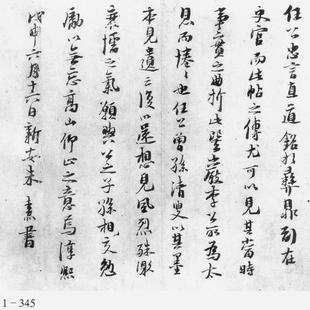 任公忠言直道銘於彝鼎副在
史官而此帖之傳尤可以見其當時
事實之曲折此巽巖李公所為太
息而惓々也任公曾孫清叟以其墨
本見遺三復以還想見風烈殊激
衰懦之氣願與公之子孫相交勉
勵以無忘高山仰止之意焉淳熙
戊申六月十六日新安朱熹書
1-345